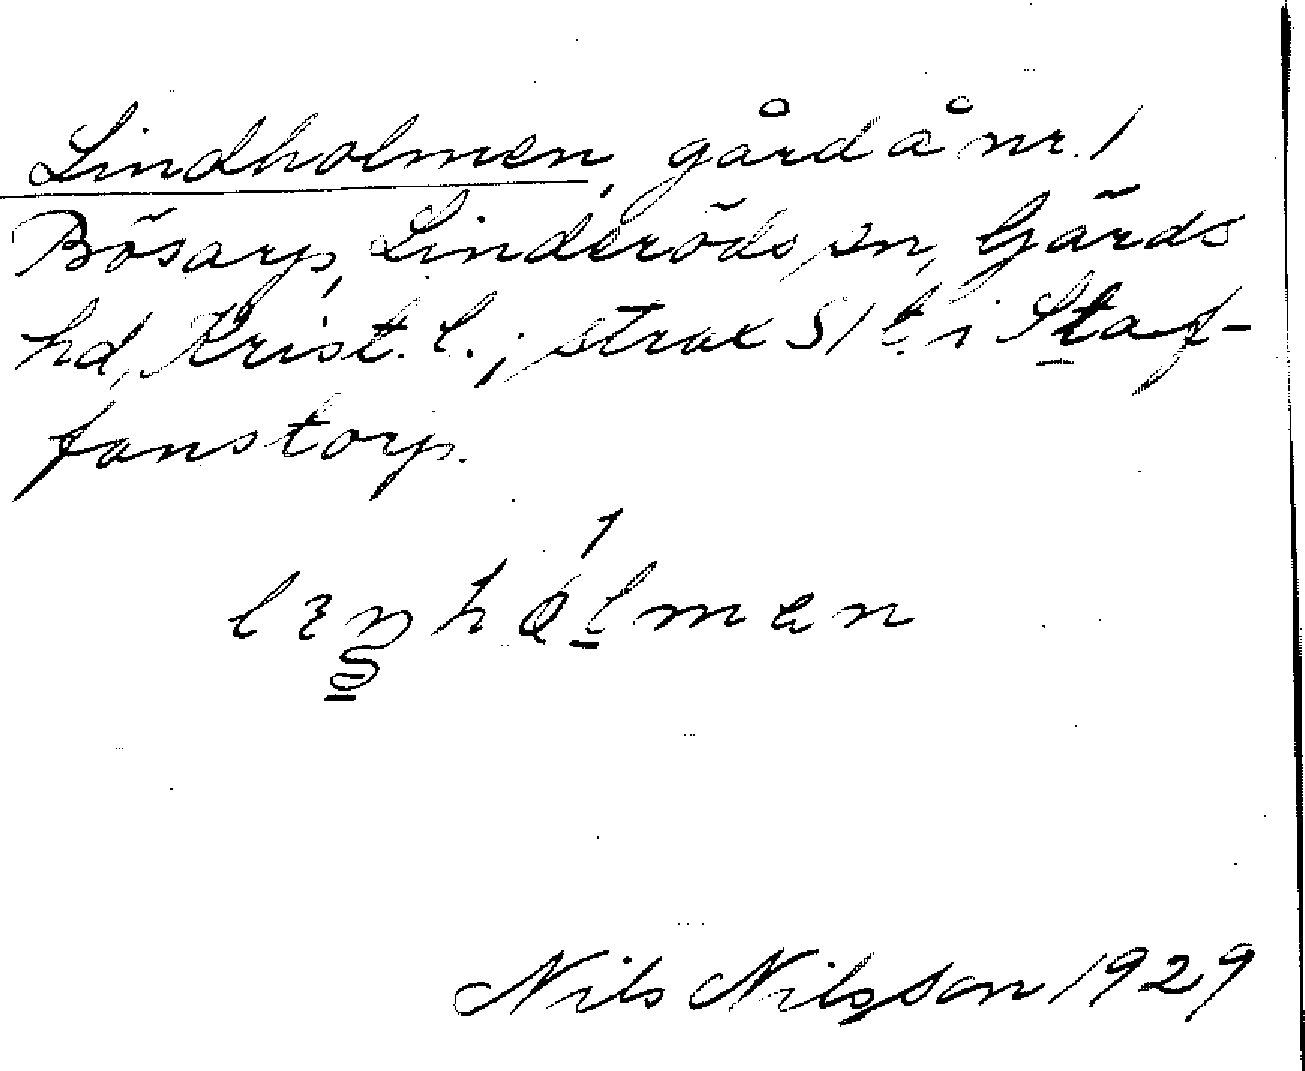 Lindholmen, gård å nr. 1
Bösarp, Linderöds sn, Gärds
hd, Krist. l.; strax SV t. i Staf-
fanstorp.
Nils Nilsson 1929